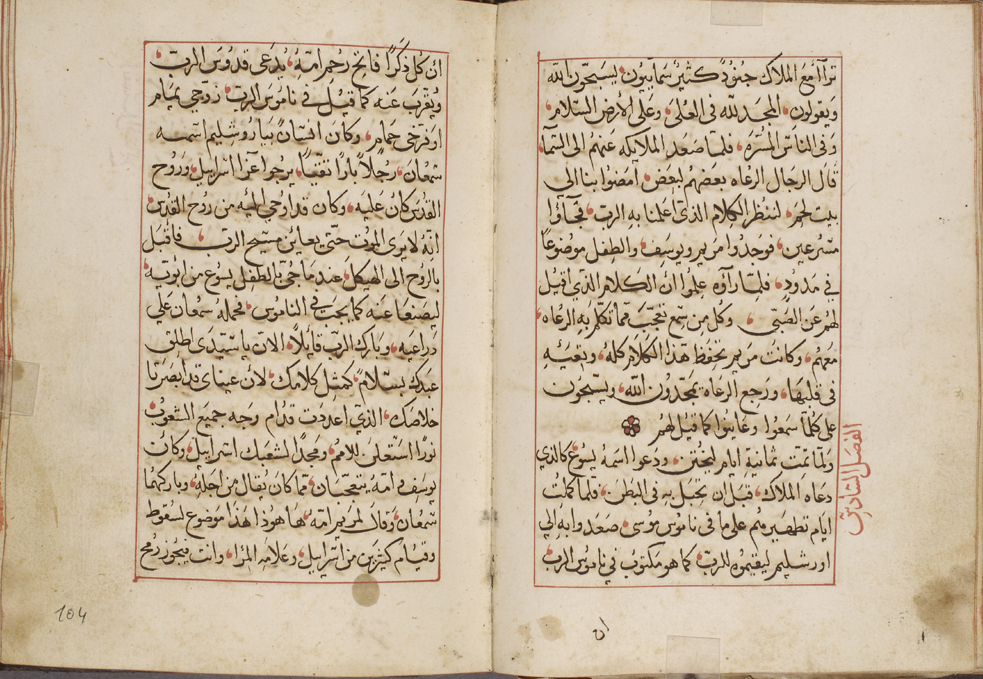 تراآ مع الملاك جنود كثير سماييون يسبحون الله
ويقولون المجد لله في العلى وعلى الارض السلام
وفي الناس المسره فلما صعد الملايكه عنهم الى السما
قال الرجال الرعاه بعضهم لبعض امضوا بنا الى
بيت لحم لننظر الكلام الذي اعلنا به الرب فجآؤا
مسرعين فوجدوا مريم ويوسف والطفل موضوعاً
في مدود فلما رآوه علموا ان الكلام الذي قيل
لهم عن الصبي وكل من سمع تعجب مما تكلم به الرعاه
معهم وكانت مريم تحفظ هذا الكلام كله وتعيه
في قلبها ورجع الرعاه يمجدون الله ويسبحون
على كلما سمعوا وعاينوا كما قيل لهم
الفصل السادس
ولما تمت ثمانية ايام ليختن ودعوا اسمه يسوع كالذي
دعاه الملاك قبل ان تحبل به في البطن فلما كملت
ايام تطهيرهم على ما في ناموس موسى صعدوا به الى
اورشليم ليقيموه للرب كما هو مكتوب في ناموس الرب
ان
ان كل ذكراً فاتح رحم امه يدعى قدوس الرب
ويقرب عنه كما قيل في ناموس الرب زوجي يمام
او فرخي حمام وكان انسان بياروشليم اسمه
سمعان رجلاً باراً تقياً يرجوا عزا اسراييل وروح
القدس كان عليه وكان قد اوحي اليه من روح القدس
انه لا يرى الموت حتى يعاين مسيح الرب فاقبل
بالروح الى الهيكل عندما جي بالطفل يسوع من ابويه
ليصنعا عنه كما يجب في الناموس فحمله سمعان على
دراعيه وبارك الرب قايلاً الان ياسيدي اطلق
عبدك بسلام كمثل كلامك لان عيناي قد ابصرتا
خلاصك الذي اعددت قدام وجه جميع الشعوب
نورا استعلن للامم ومجداً لشعبك اسراييل وكانت
يوسف وامه يتعجبان مما كان يقال من اجله وباركهما
سمعان وقال لمريم امه ها هوذا هذا موضوع لسقوط
وقيام كثيرين من اسراييل وعلامه المرا وانت فيجوز رمح
104